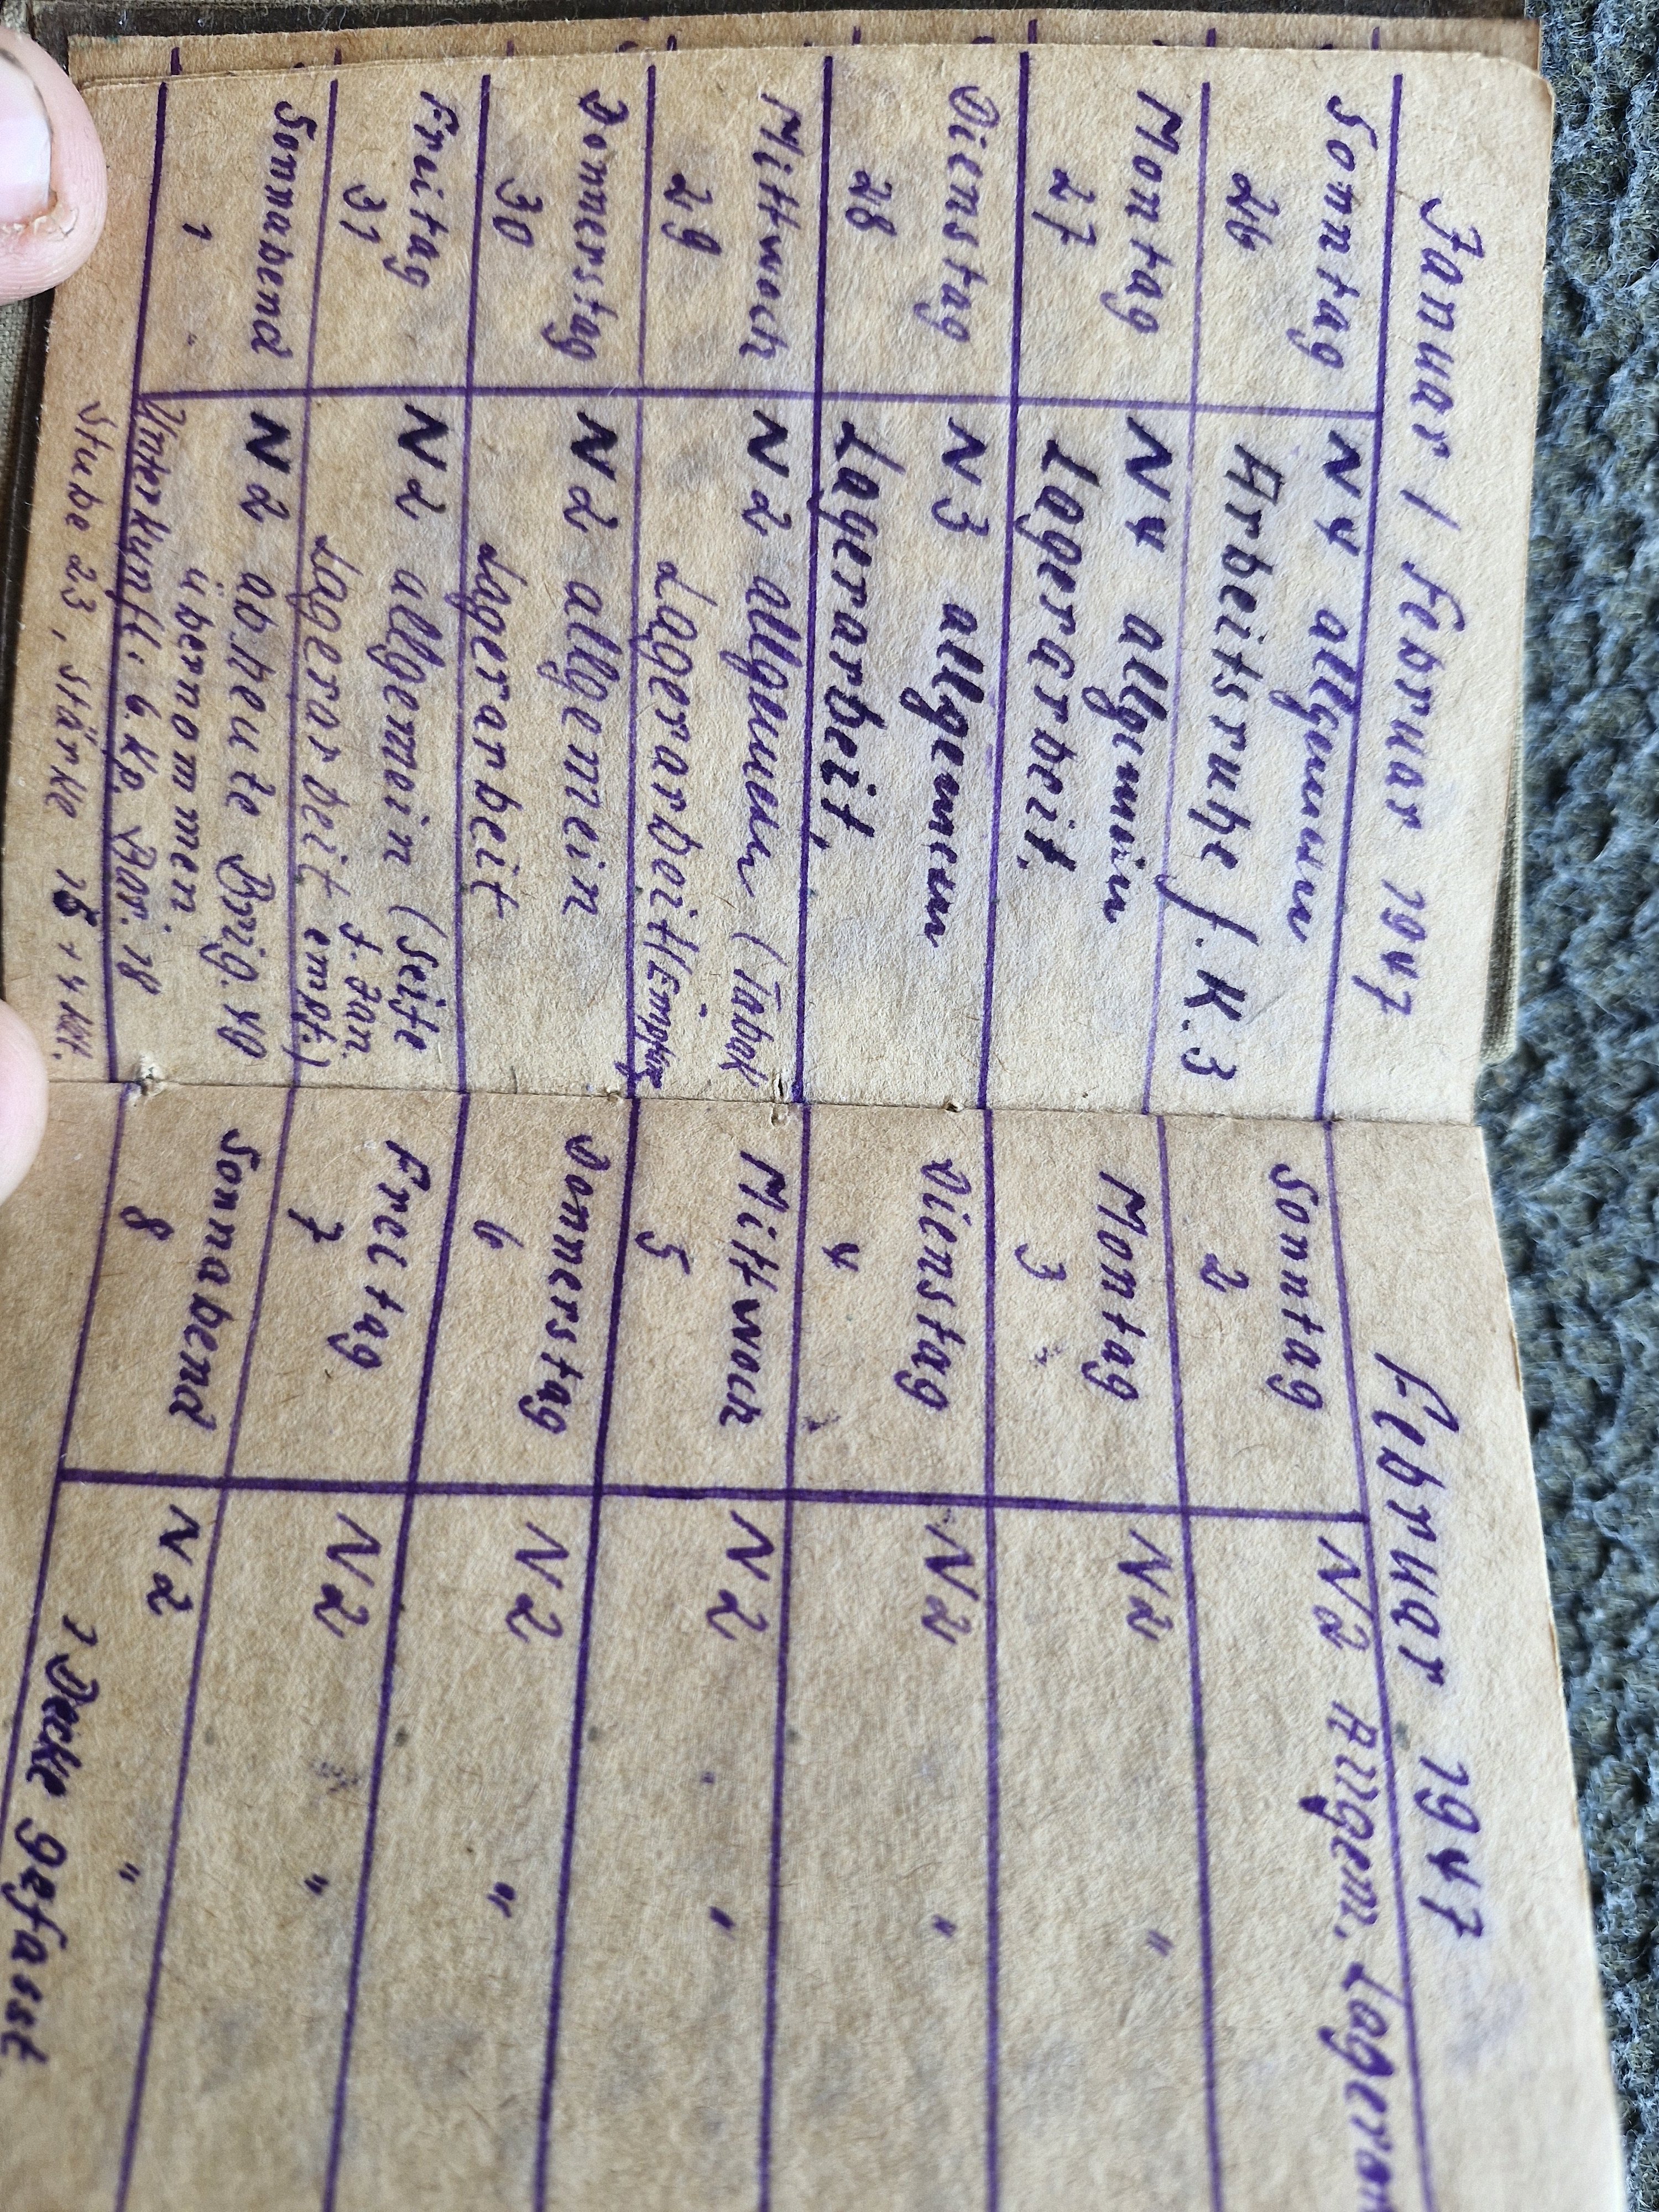 Januar / Februar 1947
Sonntag N4 allgemein
26 Arbeitsruhe f. K. 3
Montag N4 allgemein
27 Lagerarbeit.
Dienstag N3 allgemein
28 Lagerarbeit,
Mittwoch N2 allgemein (Tabak
29 Lagerarbeit Empfang
Donnerstag N2 allgemein
30 Lagerarbeit
Freitag N2 allgemein (Seife
31 Lagerarbeit f. Jan. empf.)
Sonnabend N2 ab heute Brig. 49
1 übernommen
Unterkunft: 6. Kp. Bar. 18
Stube 23, Stärke
Februar 1947
Sonntag N2 Allgem.
2
Montag N2 "
3
Dienstag N2 "
4
Mittwoch N2 "
5
Donnerstag N2 "
6
Freitag N2 "
7
Sonnabend N2 "
8 1 Decke gefasst